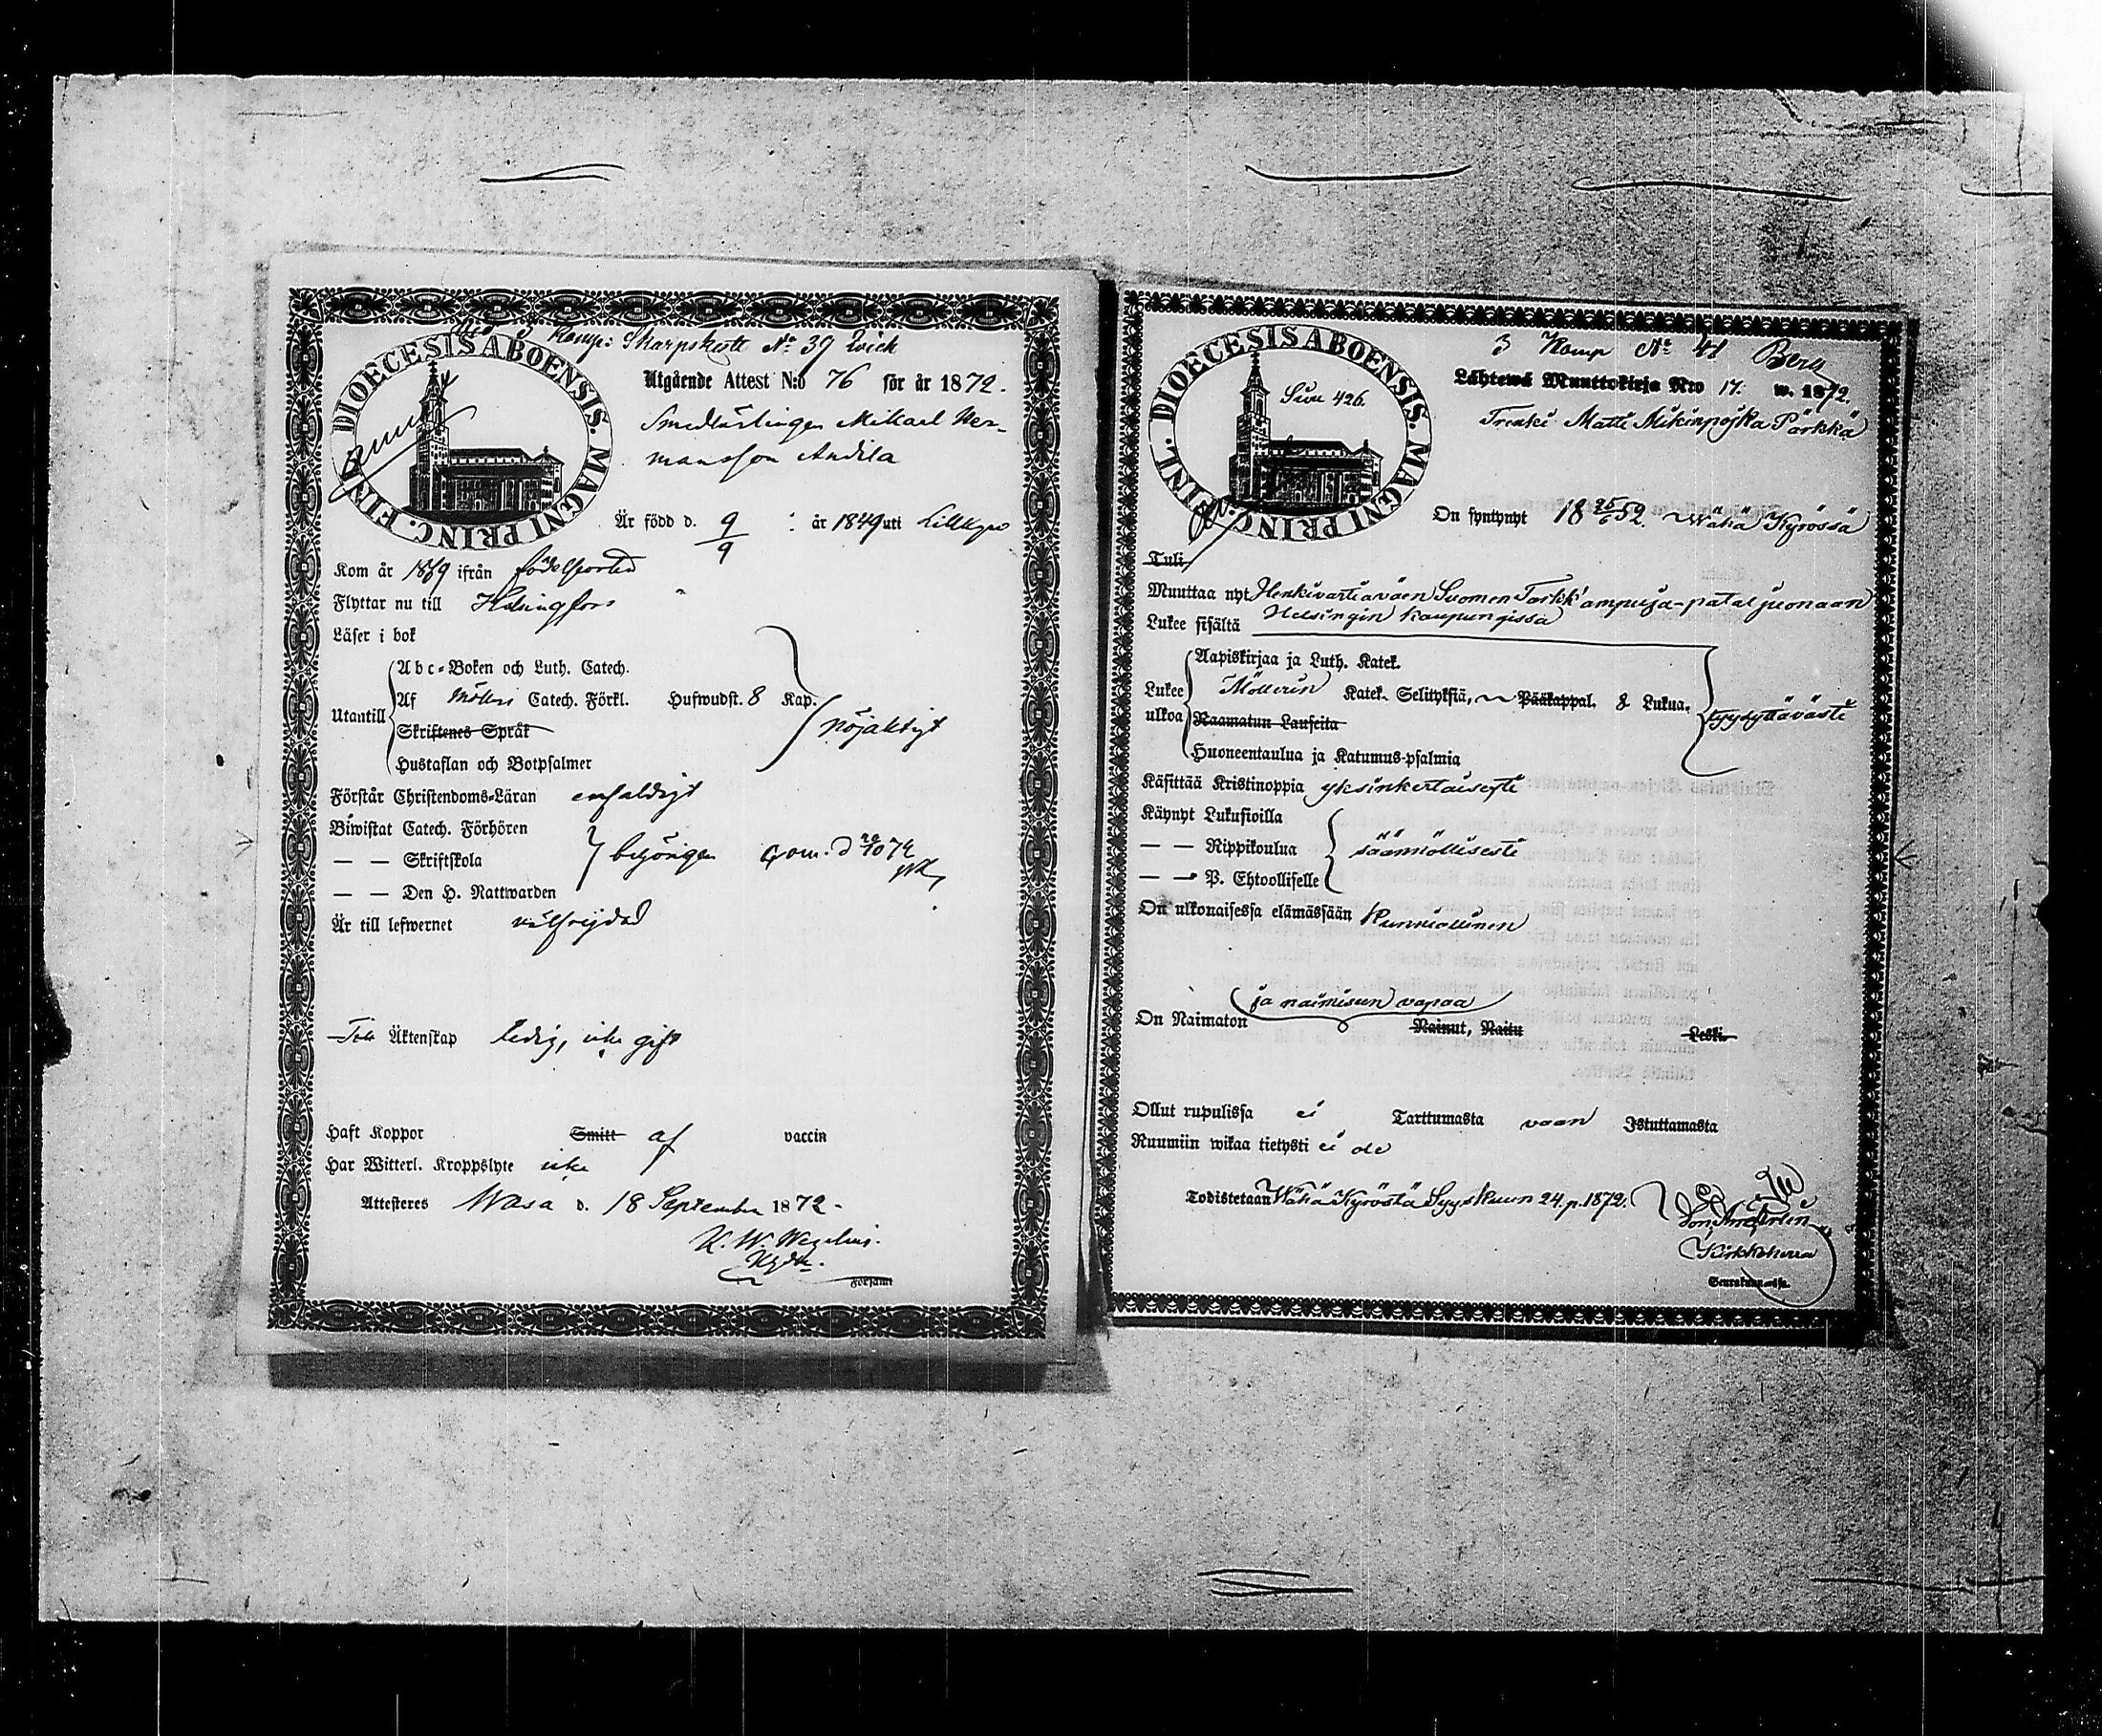 Komp: Skarpskytt No 39 Wick
DIOECESIS ABOENSIS. MAGNI PRINC. FINL.
Utgående Attest N:o 76 för år 1872.
Smedlärlingen Mikael Her-
mansson Andila
Är född d. 9/9 år 1849 uti Lillkyro
Kom år 1869 ifrån födelseorten
Flyttar nu till Helsingfors
Läser i bok
Abc-Boken och Luth. Catech.
Utantill Af Möllers Catech. Förkl. Hufwudst. 8 Kap. nöjaktigt
Skriftenes Språk
Hustaflan och Botpsalmer
Förstår Christendoms-Läran enfaldigt
Biwistat Catech. Förhören
— — Skriftskola behörigen
— — Den H. Nattwarden
Är till lefwernet välfrejdad
Till Äktenskap ledig, icke gift
Haft Koppor Smitt af vaccin
Har Witterl. Kroppslyte icke
Attesteres Wasa d. 18 September 1872.
K. W. Wegelius.
Församl
3 Komp No 41 Berg
DIOECESIS ABOENSIS. MAGNI PRINC. FINL.
Sivu 426.
Lähtewä Muuttokirja Nro 17. w. 1872.
Trenki Matti Mikinpojka Pärkkä
On syntynyt 18 25/6 52. Wähä Kyrössä
Tuli
Muuttaa nyt Henkivartiaväen Suomen Tarkk'ampuja-pataljoonaan
Helsingin kaupungissa
Lukee sisältä
Aapiskirjaa ja Luth. Katek.
Lukee ulkoa Möllerin Katek. Selityksiä, Pääkappal. 8 Lukua. tyydyttävästi
Raamatun Lauseita
Huoneentaulua ja Katumus-psalmia
Käsittää Kristinoppia yksinkertaisesti
Käynyt Lukusioilla
— — Rippikoulua säännöllisesti
— — P. Ehtoollisella
On ulkonaisessa elämässään Kunniallinen
ja naimiseen vapaa
On Naimaton Nainut, Naitu Leski
Ollut rupulissa ei Tarttumasta vaan Istuttamasta
Ruumiin wikaa tietysti ei ole
Todistetaan Wähä Kyröstä Syyskuun 24. p. 1872.
Kirkkoherra